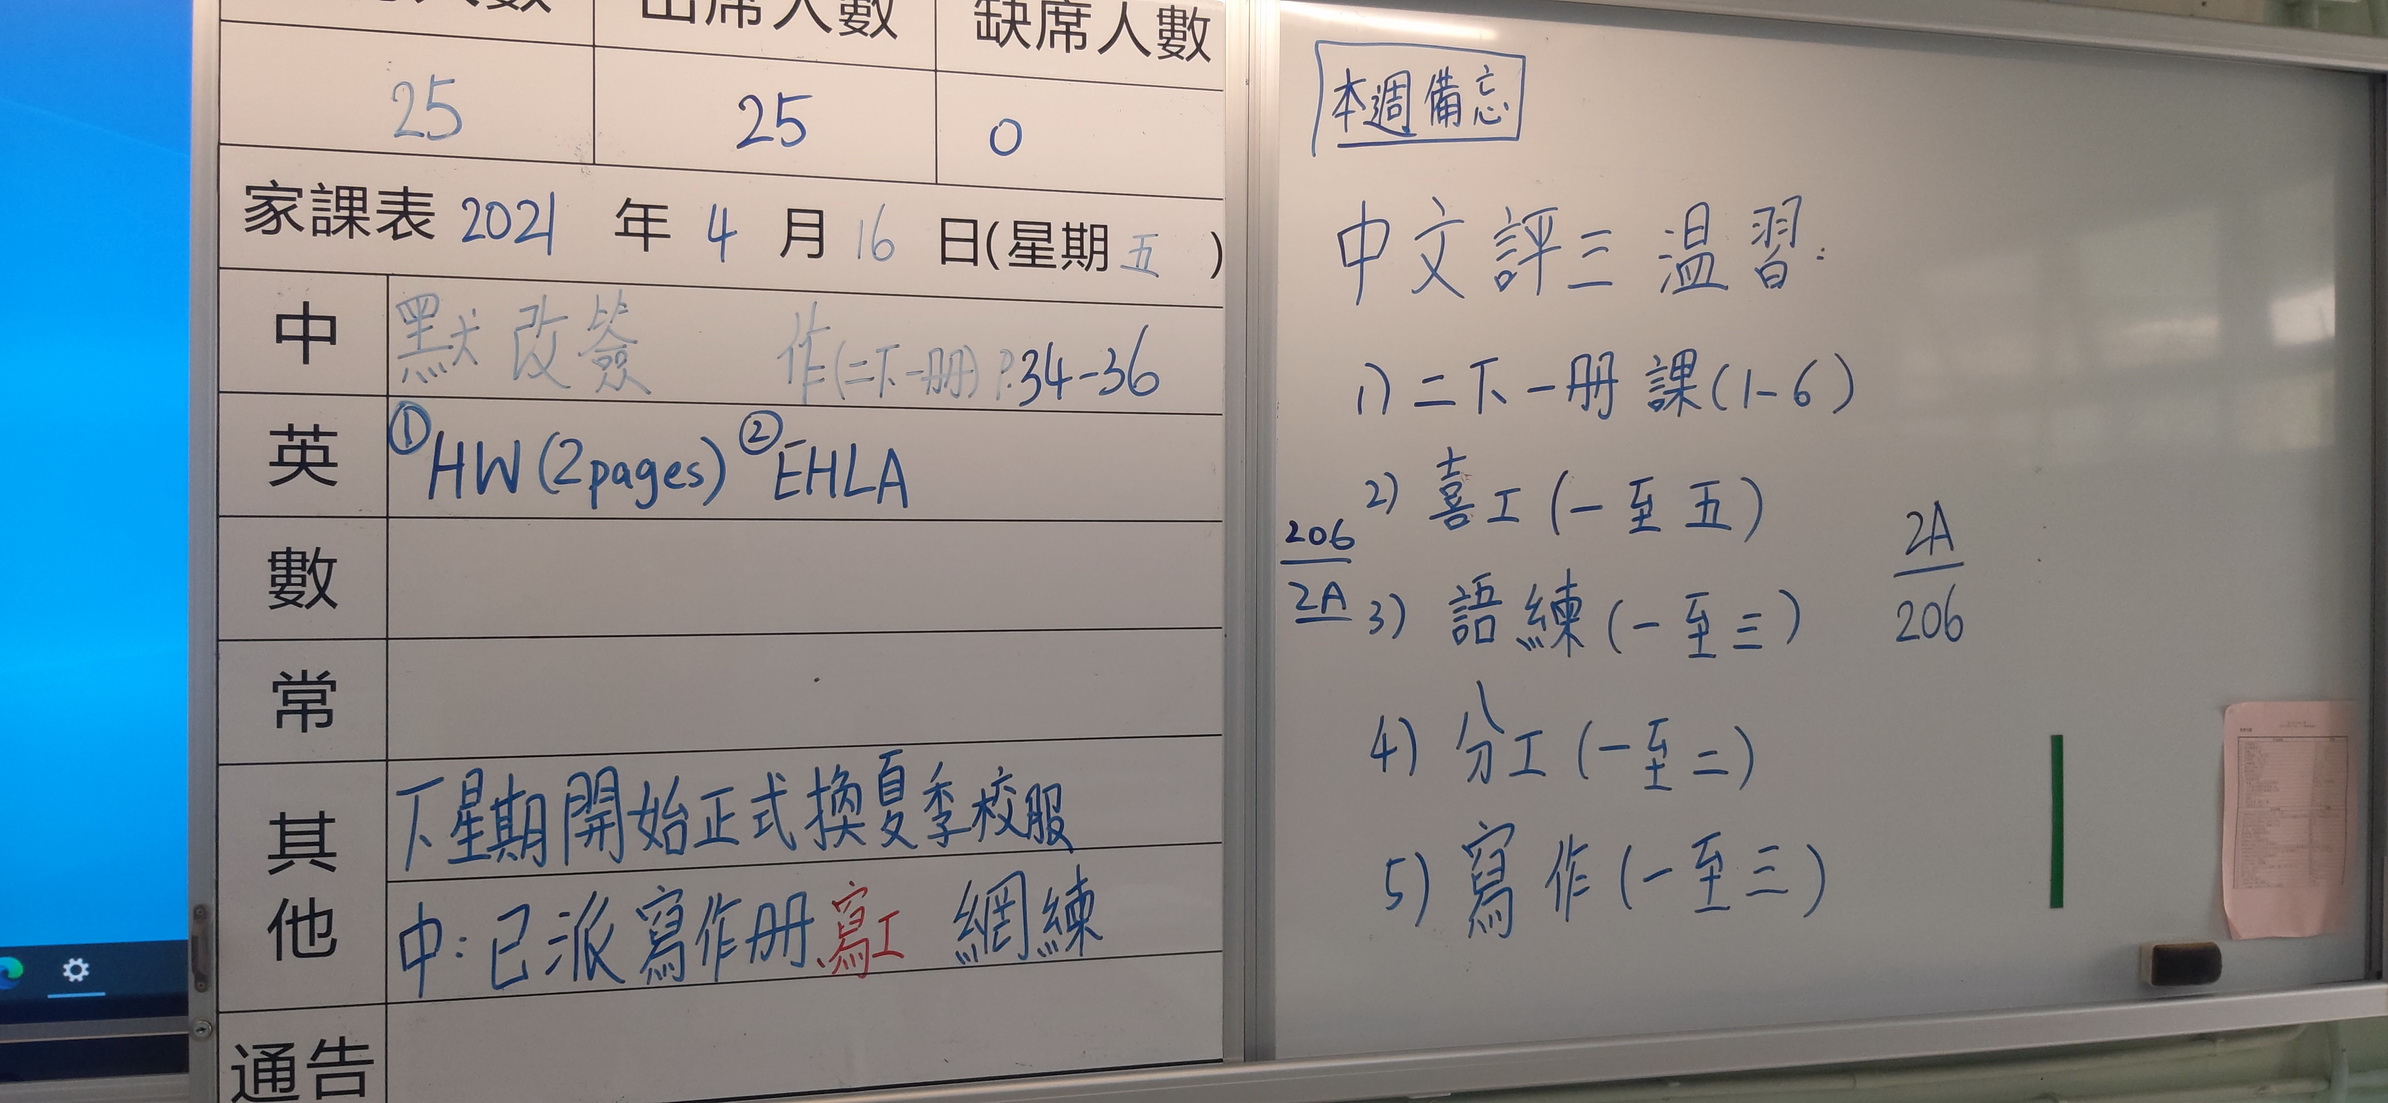 出席人數 缺席人數
25 25 0
家課表 2021 年 4 月 16 日(星期 五 )
中 默改簽 作(二下一冊) P.34-36
英 ①HW (2pages) ②EHLA
數
常
其他 下星期開始正式換夏季校服
中:已派寫作冊、寫工 網練
通告
本週備忘
中文評三溫習:
1) 二下一冊 課(1-6)
2) 喜工(一至五)
3) 語練(一至三)
4) 分工(一至二)
5) 寫作(一至三)
206
2A
2A
206